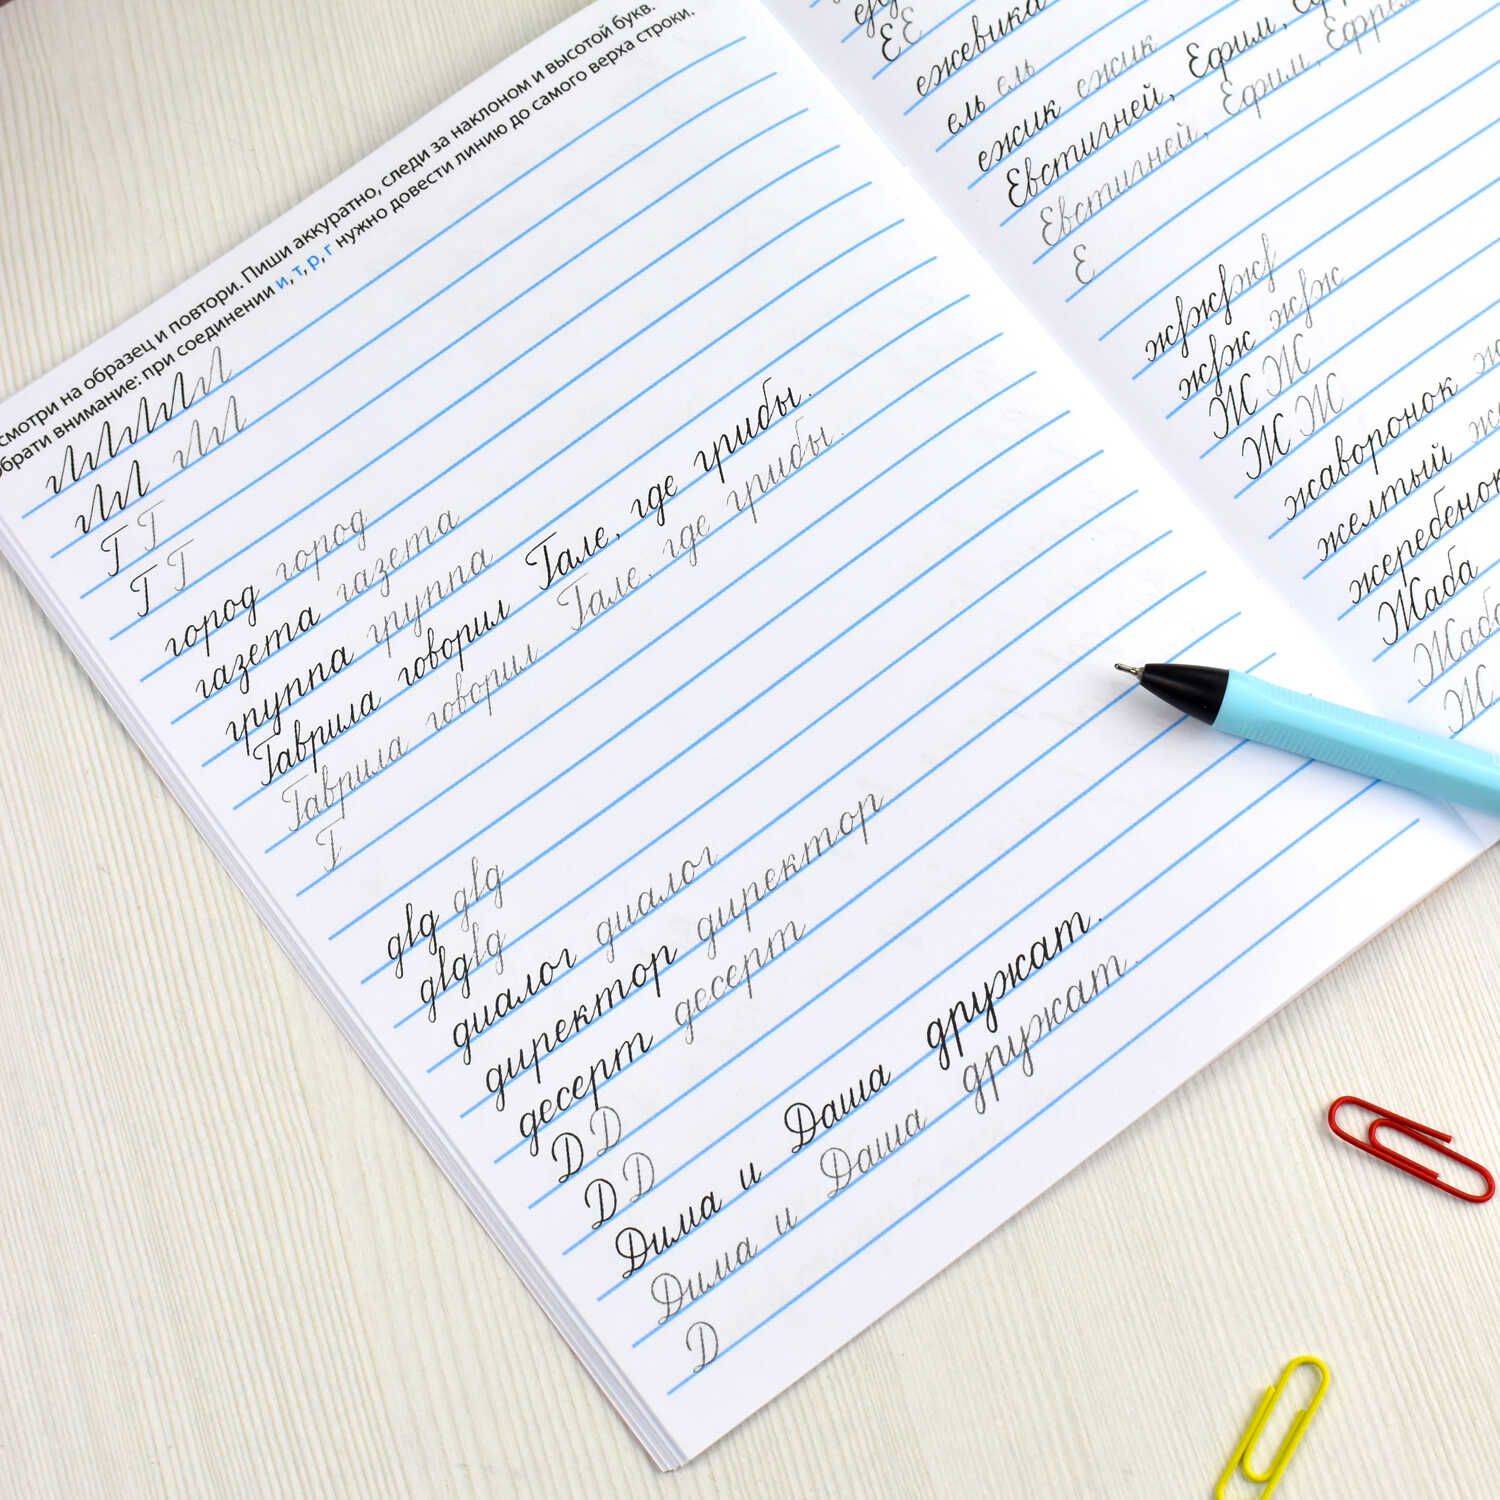 смотри на образец и повтори. Пиши аккуратно, следи за наклоном и высотой букв.
обрати внимание: при соединении и, т, р, г нужно довести линию до самого верха строки.
Г Г
Г Г
город город
газета газета
группа группа
Гаврила говорил Гале, где грибы.
Гаврила говорил Гале, где грибы.
Г
диалог диалог
директор директор
десерт десерт
Д Д
Д Д
Дима и Даша дружат.
Дима и Даша дружат.
Д
ЕЕ
ежевика
ель ель
ежик ежик
Евстигней, Ефим,
Евстигней, Ефим,
Е
Ж Ж
Ж Ж
жаворонок
желтый
жеребенок
Жаба
Жаба
Ж